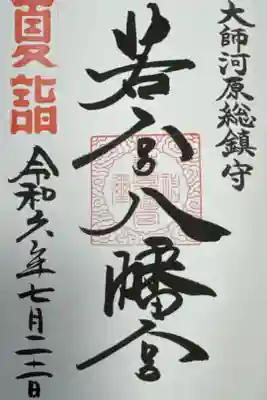 大師河原総鎮守
若宮八幡宮
夏詣
令和六年七月二十二日